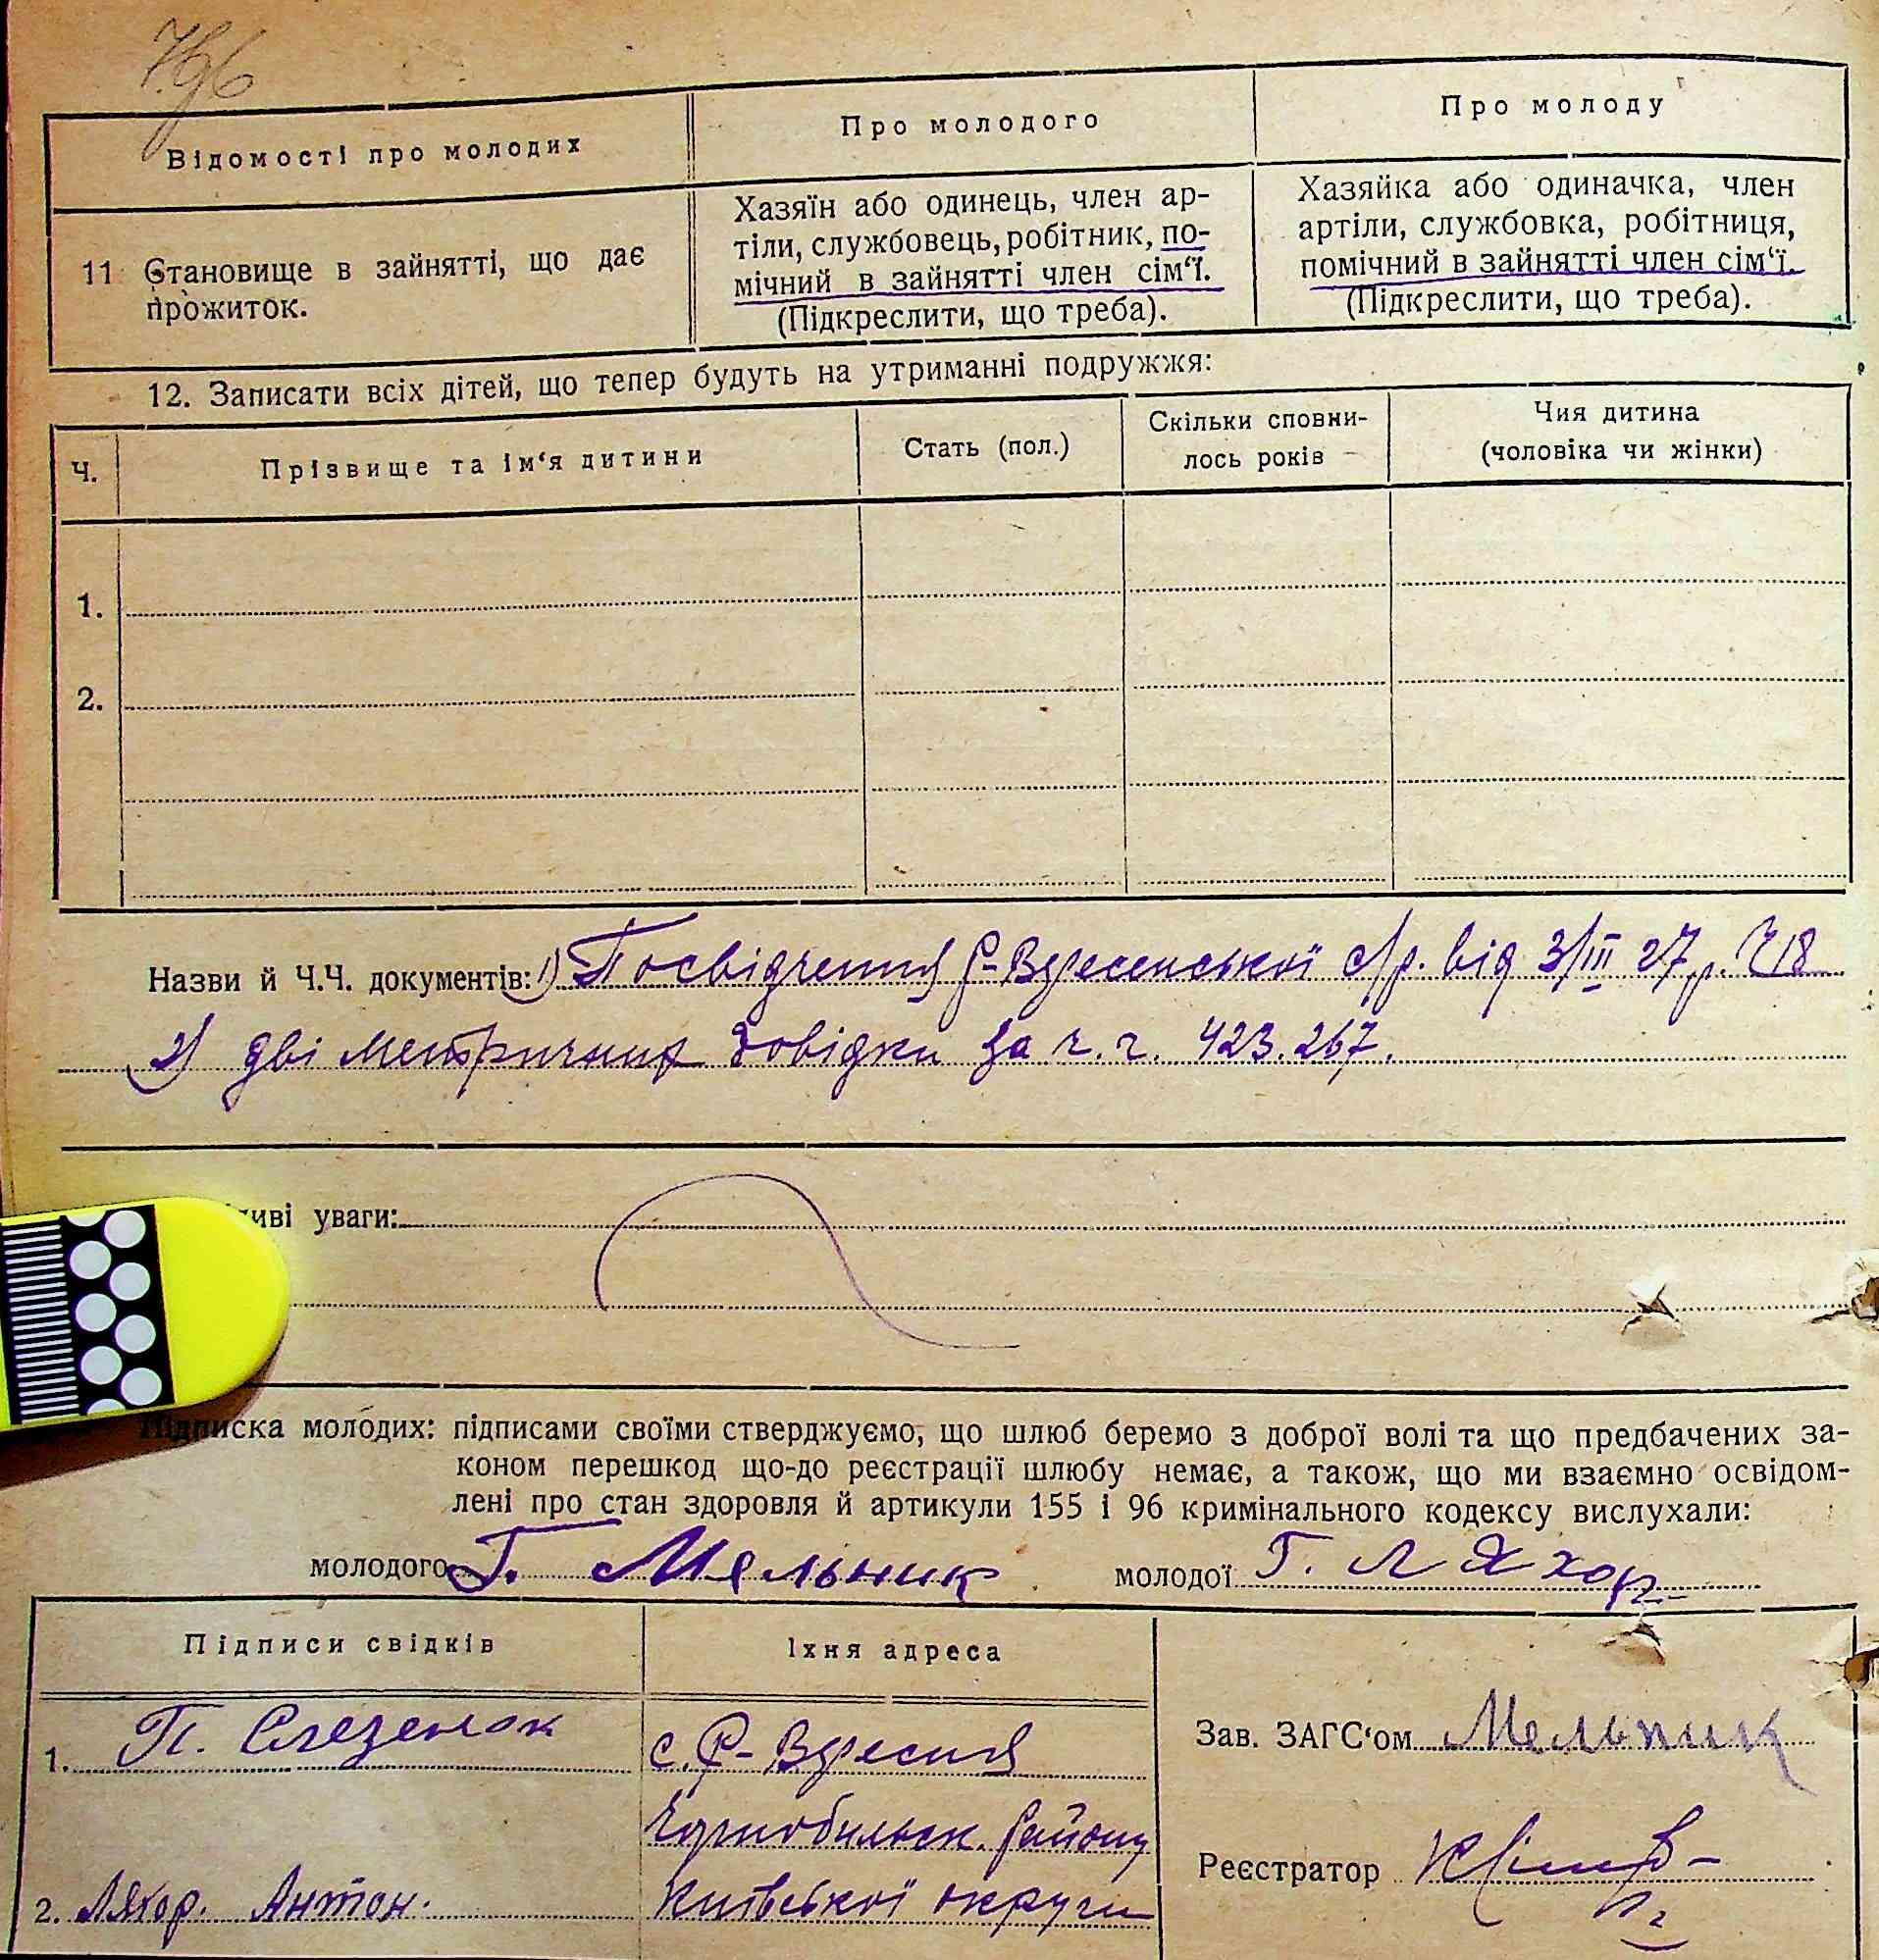 796
Відомості про молодих
Про молодого
Про молоду
11 Становище в зайнятті, що дає
прожиток.
Хазяїн або одинець, член ар-
тіли, службовець, робітник, по-
мічний в зайнятті член сім‘ї.
(Підкреслити, що треба).
Хазяйка або одиначка, член
артіли, службовка, робітниця,
помічний в зайнятті член сім‘ї.
(Підкреслити, що треба).
12. Записати всіх дітей, що тепер будуть на утриманні подружжя:
Ч.
Прізвище та ім‘я дитини
Стать (пол.)
Скільки сповни-
лось років
Чия дитина
(чоловіка чи жінки)
1.
2.
Назви й Ч.Ч. документів: 1) Посвідчення Р-Вересенської с/р. від 3/III 27 р. Ч 18
2) дві метричних довідки за ч. ч. 423. 267.
уваги:
Підписка молодих: підписами своїми стверджуємо, що шлюб беремо з доброї волі та що предбачених за-
коном перешкод що-до реєстрації шлюбу немає, а також, що ми взаємно освідом-
лені про стан здоровля й артикули 155 і 96 кримінального кодексу вислухали:
молодого Г. Мельник молодої Г. Ляхор
Підписи свідків
Їхня адреса
1. П. Слезенок
с. Р-Вересня
Чорнобильск. району
2. Ляхор. Антон.
Київської округи
Зав. ЗАГС‘ом Мельник
Реєстратор